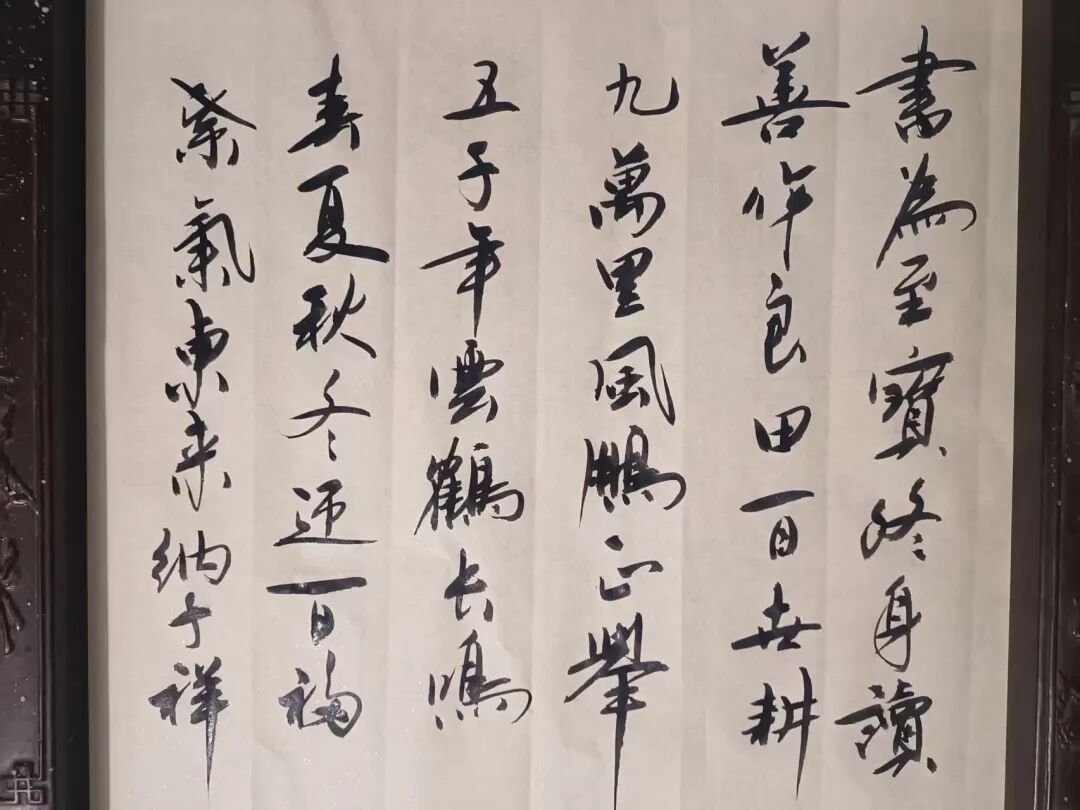 書為至寶終身讀
善作良田百世耕
九萬里風鵬正舉
五千年雲鶴長鳴
春夏秋冬迎百福
紫氣東來納千祥